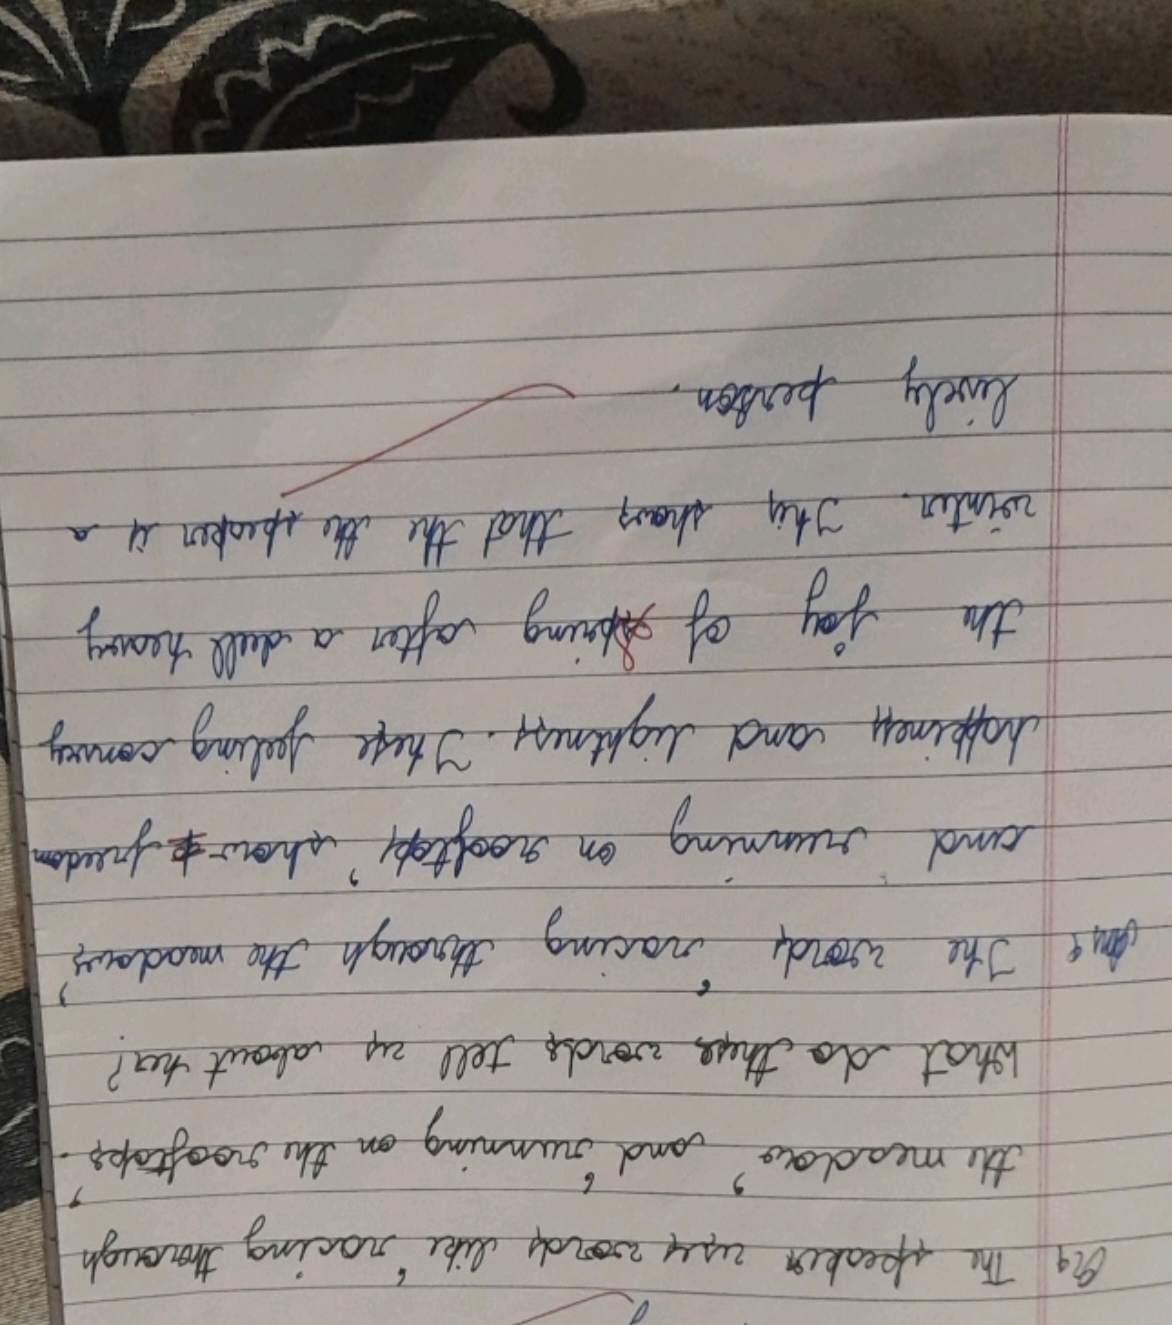 Q4 The speaker uses words like "racing through
the meadow" and "running on the rooftops".
What do these words tell us about her?
Ans The words "racing through the meadows"
and running on rooftops" show freedom
happiness and lightness. These feeling convey
the joy of Spring after a dull heavy
winter. This shows that the the speaker is a
lively person.